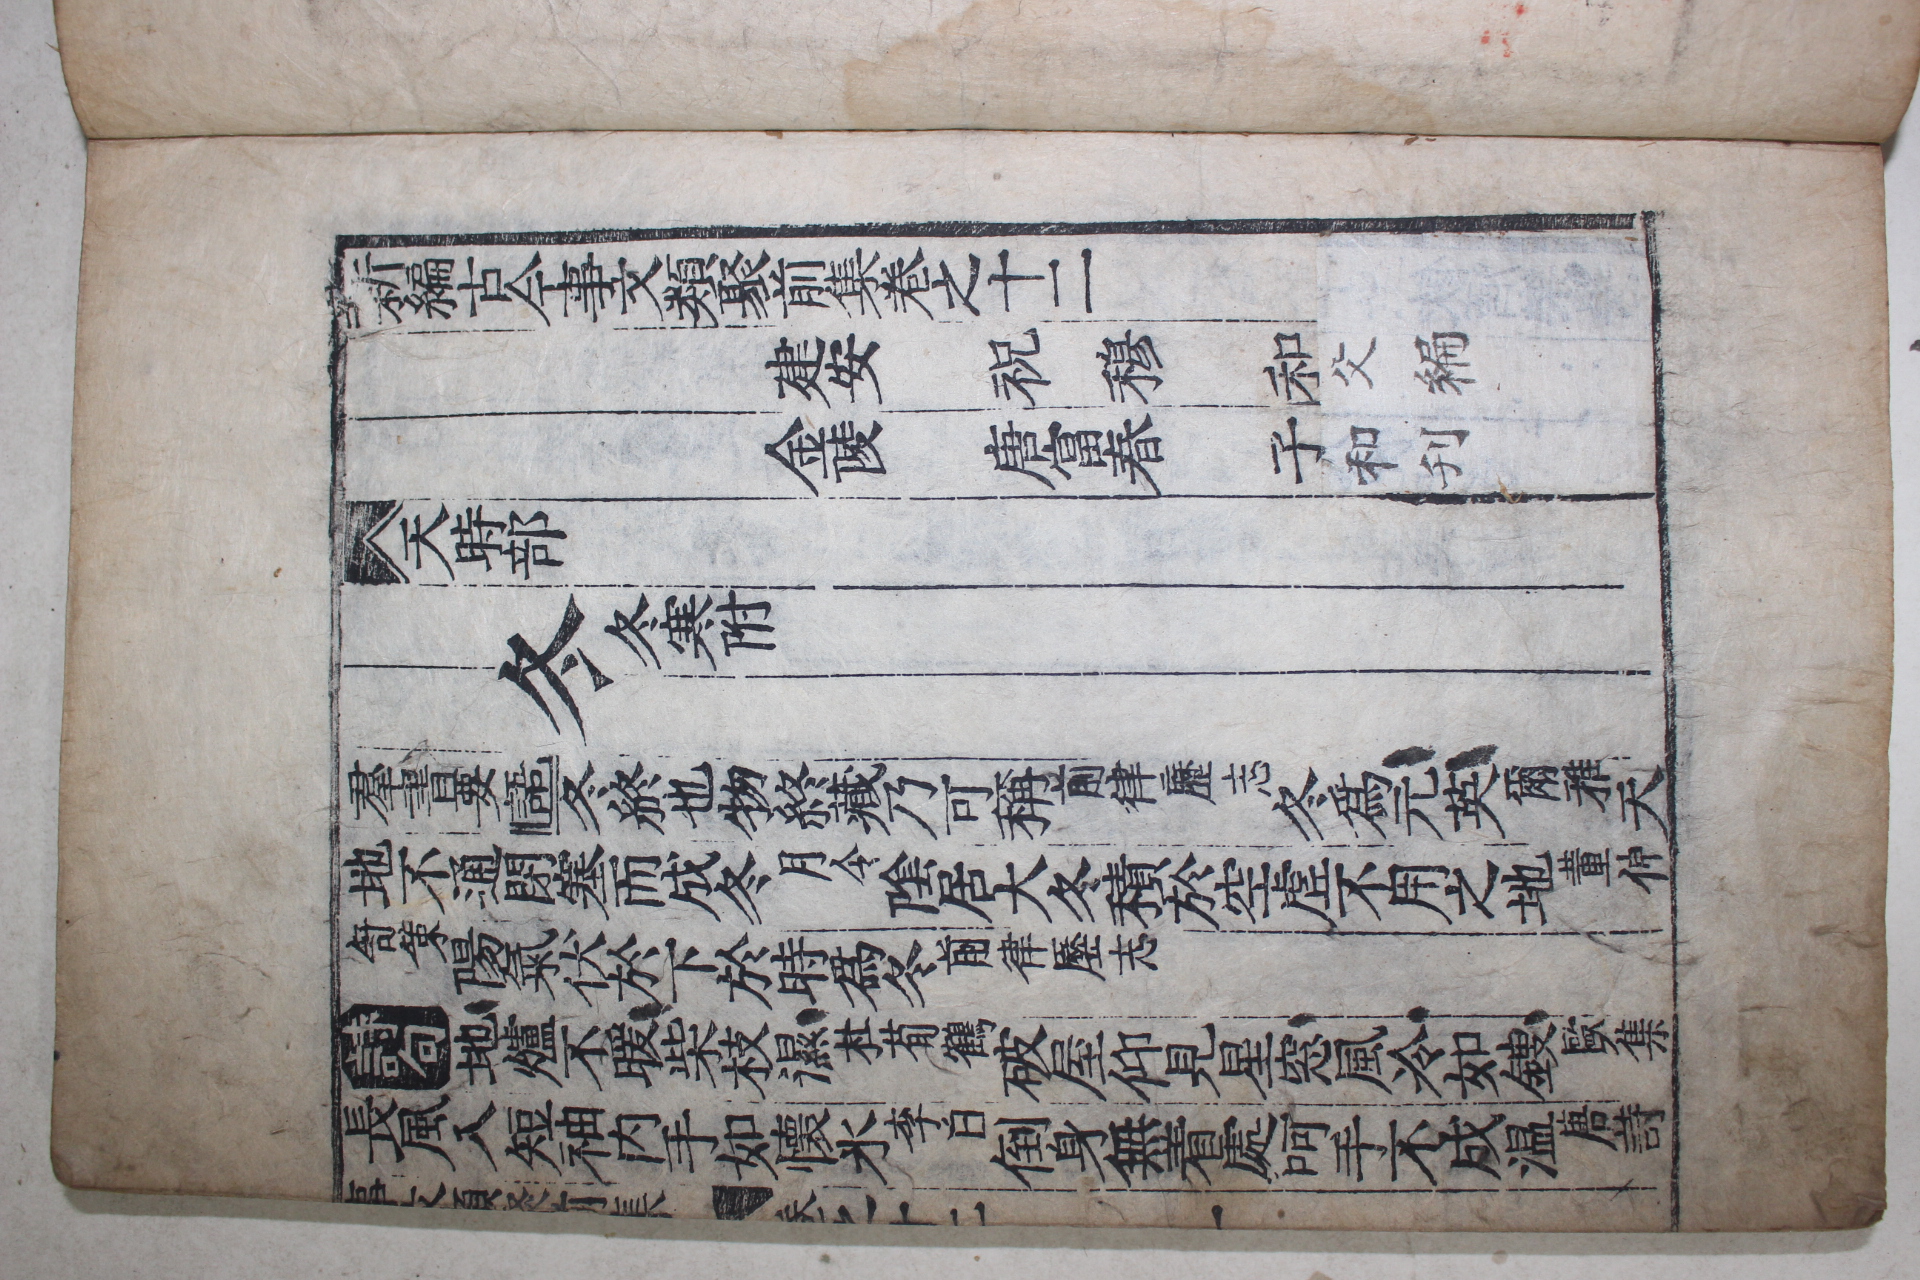 新編古今事文類聚前集卷之十二
建安 祝 穆 和父 編
金陵 唐富春 子和 刊
天時部
冬 冬寒附
羣書要語 冬終也物終藏乃可稱前律歷志 冬爲元英爾雅天
地不通閉塞而成冬月令陰居大冬積於空虛不用之地董仲
舒策陽氣伏於下於時爲冬前律歷志
詩句 地爐不暖柴枝濕杜荀鶴破屋仰見星窓風冷如鏤歐集
長風入短袖內手如懷氷李白倒身無著處呵手不成温唐詩